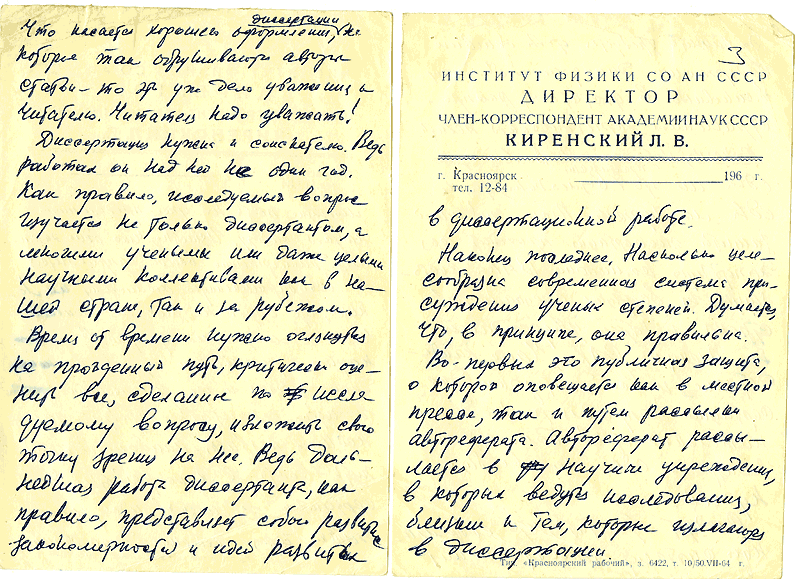 диссертации
Что касается хорошего оформления, на
которое так обрушиваются авторы
статьи – то это уже дело уважения к
читателю. Читателя надо уважать!
Диссертация нужна и соискателю. Ведь
работал он над ней не один год.
Как правило, исследуемый вопрос
изучается не только диссертантом, а
многими учеными или даже целыми
научными коллективами как в на-
шей стране, так и за рубежом.
Время от времени нужно оглянуться
на пройденный путь, критически оце-
нить все, сделанное по иссле
дуемому вопросу, изложить свою
точку зрения на нее. Ведь даль-
нейшая работа диссертанта, как
правило, представляет собой развитие
закономерностей и идей развитых
3
ИНСТИТУТ ФИЗИКИ СО АН СССР
ДИРЕКТОР
ЧЛЕН-КОРРЕСПОНДЕНТ АКАДЕМИИ НАУК СССР
КИРЕНСКИЙ Л. В.
г. Красноярск 196 г.
тел. 12-84
в диссертационной работе.
Наконец последнее. Насколько целе-
сообразна современная система при-
суждения ученых степеней. Думается,
что, в принципе, она правильна.
Во-первых это публичная защита,
о которой оповещается как в местной
прессе, так и путем рассылки
автореферата. Автореферат рассы-
лается в научные учреждения,
в которых ведутся исследования,
близкие к тем, которые излагаются
в диссертации.
Тип. «Красноярский рабочий», з. 6422, т. 10)50.VII-64 г.